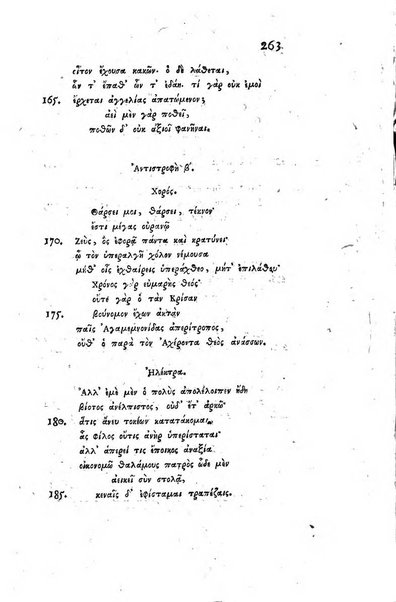 263
οἶτον ἔχουσα κακῶν· ὁ δὲ λάθεται,
ὧν τ' ἔπαθ' ὧν τ' ἐδάη. τί γὰρ οὐκ ἐμοὶ
165. ἔρχεται ἀγγελίας ἀπατώμενον;
ἀεὶ μὲν γὰρ ποθεῖ,
ποθῶν δ' οὐκ ἀξιοῖ φανῆναι.
Ἀντιστροφὴ β'.
Χορός.
Θάρσει μοι, θάρσει, τέκνον·
ἔστι μέγας οὐρανῷ
170. Ζεὺς, ὃς ἐφορᾷ πάντα καὶ κρατύνει·
ᾧ τὸν ὑπεραλγῆ χόλον νέμουσα
μήθ' οἷς ἐχθαίρεις ὑπεράχθεο, μήτ' ἐπιλάθου·
Χρόνος γὰρ εὐμαρὴς θεός·
οὔτε γὰρ ὁ τὰν Κρίσαν
175. βούνομον ἔχων ἀκτὰν
παῖς Ἀγαμεμνονίδας ἀπερίτροπος,
οὔθ' ὁ παρὰ τὸν Ἀχέροντα θεὸς ἀνάσσων.
Ἠλέκτρα.
Ἀλλ' ἐμὲ μὲν ὁ πολὺς ἀπολέλοιπεν ἤδη
βίοτος ἀνέλπιστος, οὐδ' ἔτ' ἀρκῶ·
180. ἅτις ἄνευ τοκέων κατατάκομαι,
ἇς φίλος οὔτις ἀνὴρ ὑπερίσταται·
ἀλλ' ἁπερεί τις ἔποικος ἀναξία
οἰκονομῶ θαλάμους πατρὸς ὧδε μὲν
ἀεικεῖ σὺν στολᾷ,
185. κεναῖς δ' ἐφίσταμαι τραπέζαις.